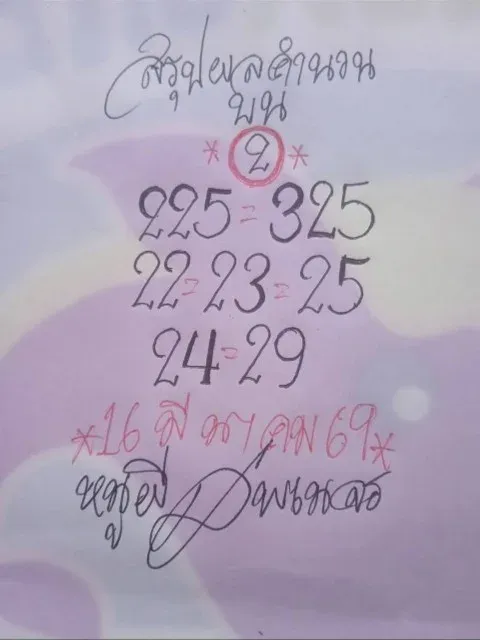 สรุปผลคำนวน
บน
* 2 *
225 = 325
22 = 23 = 25
24 = 29
*16 มีนาคม 69*